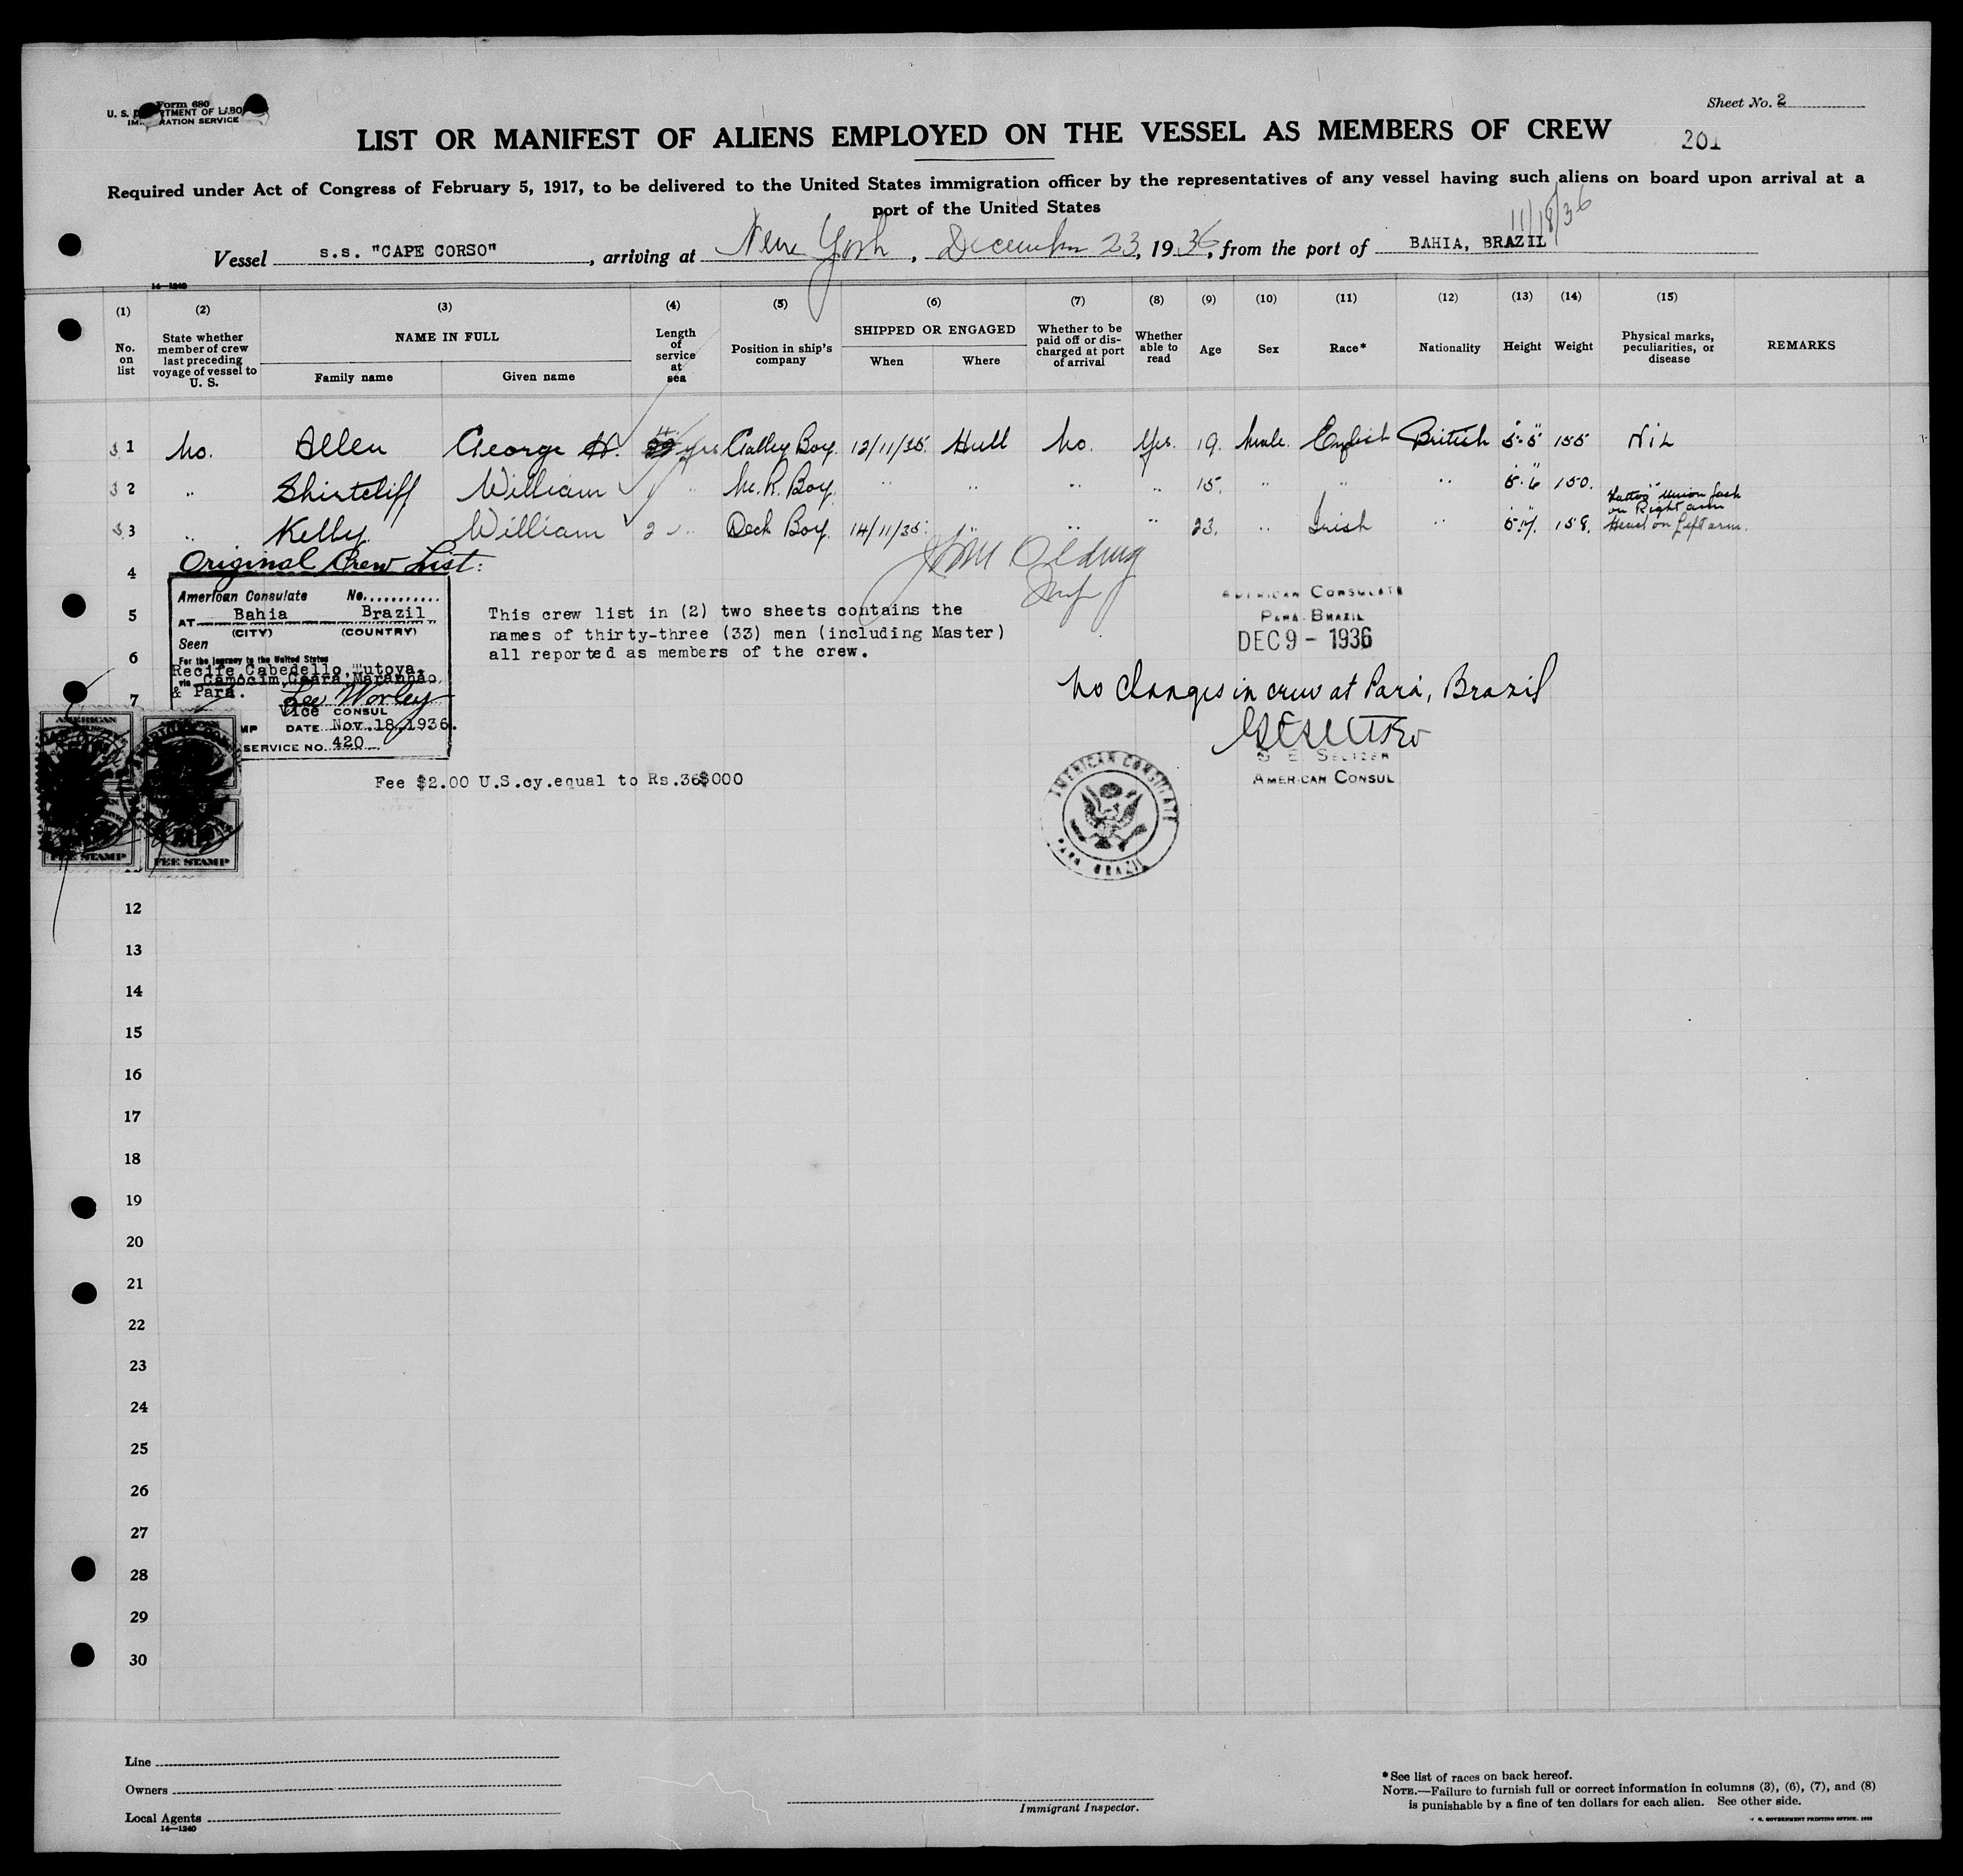 Form 680
U. S. DEPARTMENT OF LABOR
IMMIGRATION SERVICE
Sheet No. 2
LIST OR MANIFEST OF ALIENS EMPLOYED ON THE VESSEL AS MEMBERS OF CREW
201
Required under Act of Congress of February 5, 1917, to be delivered to the United States immigration officer by the representatives of any vessel having such aliens on board upon arrival at a
port of the United States
11/18/36
Vessel s.s. "CAPE CORSO", arriving at New York, December 23, 1936, from the port of BAHIA, BRAZIL
14—1240
(1) (2) (3) (4) (5) (6) (7) (8) (9) (10) (11) (12) (13) (14) (15)
No. on list
State whether member of crew last preceding voyage of vessel to U. S.
NAME IN FULL
Family name
Given name
Length of service at sea
Position in ship's company
SHIPPED OR ENGAGED
When
Where
Whether to be paid off or discharged at port of arrival
Whether able to read
Age
Sex
Race*
Nationality
Height
Weight
Physical marks, peculiarities, or disease
REMARKS
1 No. Allen George H. yrs Galley Boy. 12/11/35. Hull No. Yes. 19. Male. English British 5-5" 155 Nil
2 " Shirtcliff William " M.R. Boy. " " " " 15. " " " 5-6" 150.
3 " Kelly. William 2 " Deck Boy. 14/11/35. " " " 23. " Irish " 5-7. 158. Tattoo "Union Jack on Right arm Head on Left arm.
Original Crew List:
4
American Consulate No...........
5
AT Bahia Brazil
(CITY) (COUNTRY)
Seen
6
For the journey to the United States
Recife, Cabedello, Tutoya,
via Camocim, Ceara, Maranhao,
& Para.
7
Lee Worley
Vice CONSUL
DATE Nov.18,1936.
SERVICE NO. 420
AMERICAN
FEE STAMP
FEE STAMP
This crew list in (2) two sheets contains the
names of thirty-three (33) men (including Master)
all reported as members of the crew.
Fee $2.00 U.S.cy.equal to Rs.36$000
AMERICAN CONSULATE
PARA. BRAZIL
DEC 9 - 1936
No changes in crew at Pará, Brazil
G E SELTZER
AMERICAN CONSUL
AMERICAN CONSULATE
PARA BRAZIL
12
13
14
15
16
17
18
19
20
21
22
23
24
25
26
27
28
29
30
Line
Owners
Local Agents
14—1240
Immigrant Inspector.
*See list of races on back hereof.
NOTE.—Failure to furnish full or correct information in columns (3), (6), (7), and (8)
is punishable by a fine of ten dollars for each alien. See other side.
U. S. GOVERNMENT PRINTING OFFICE